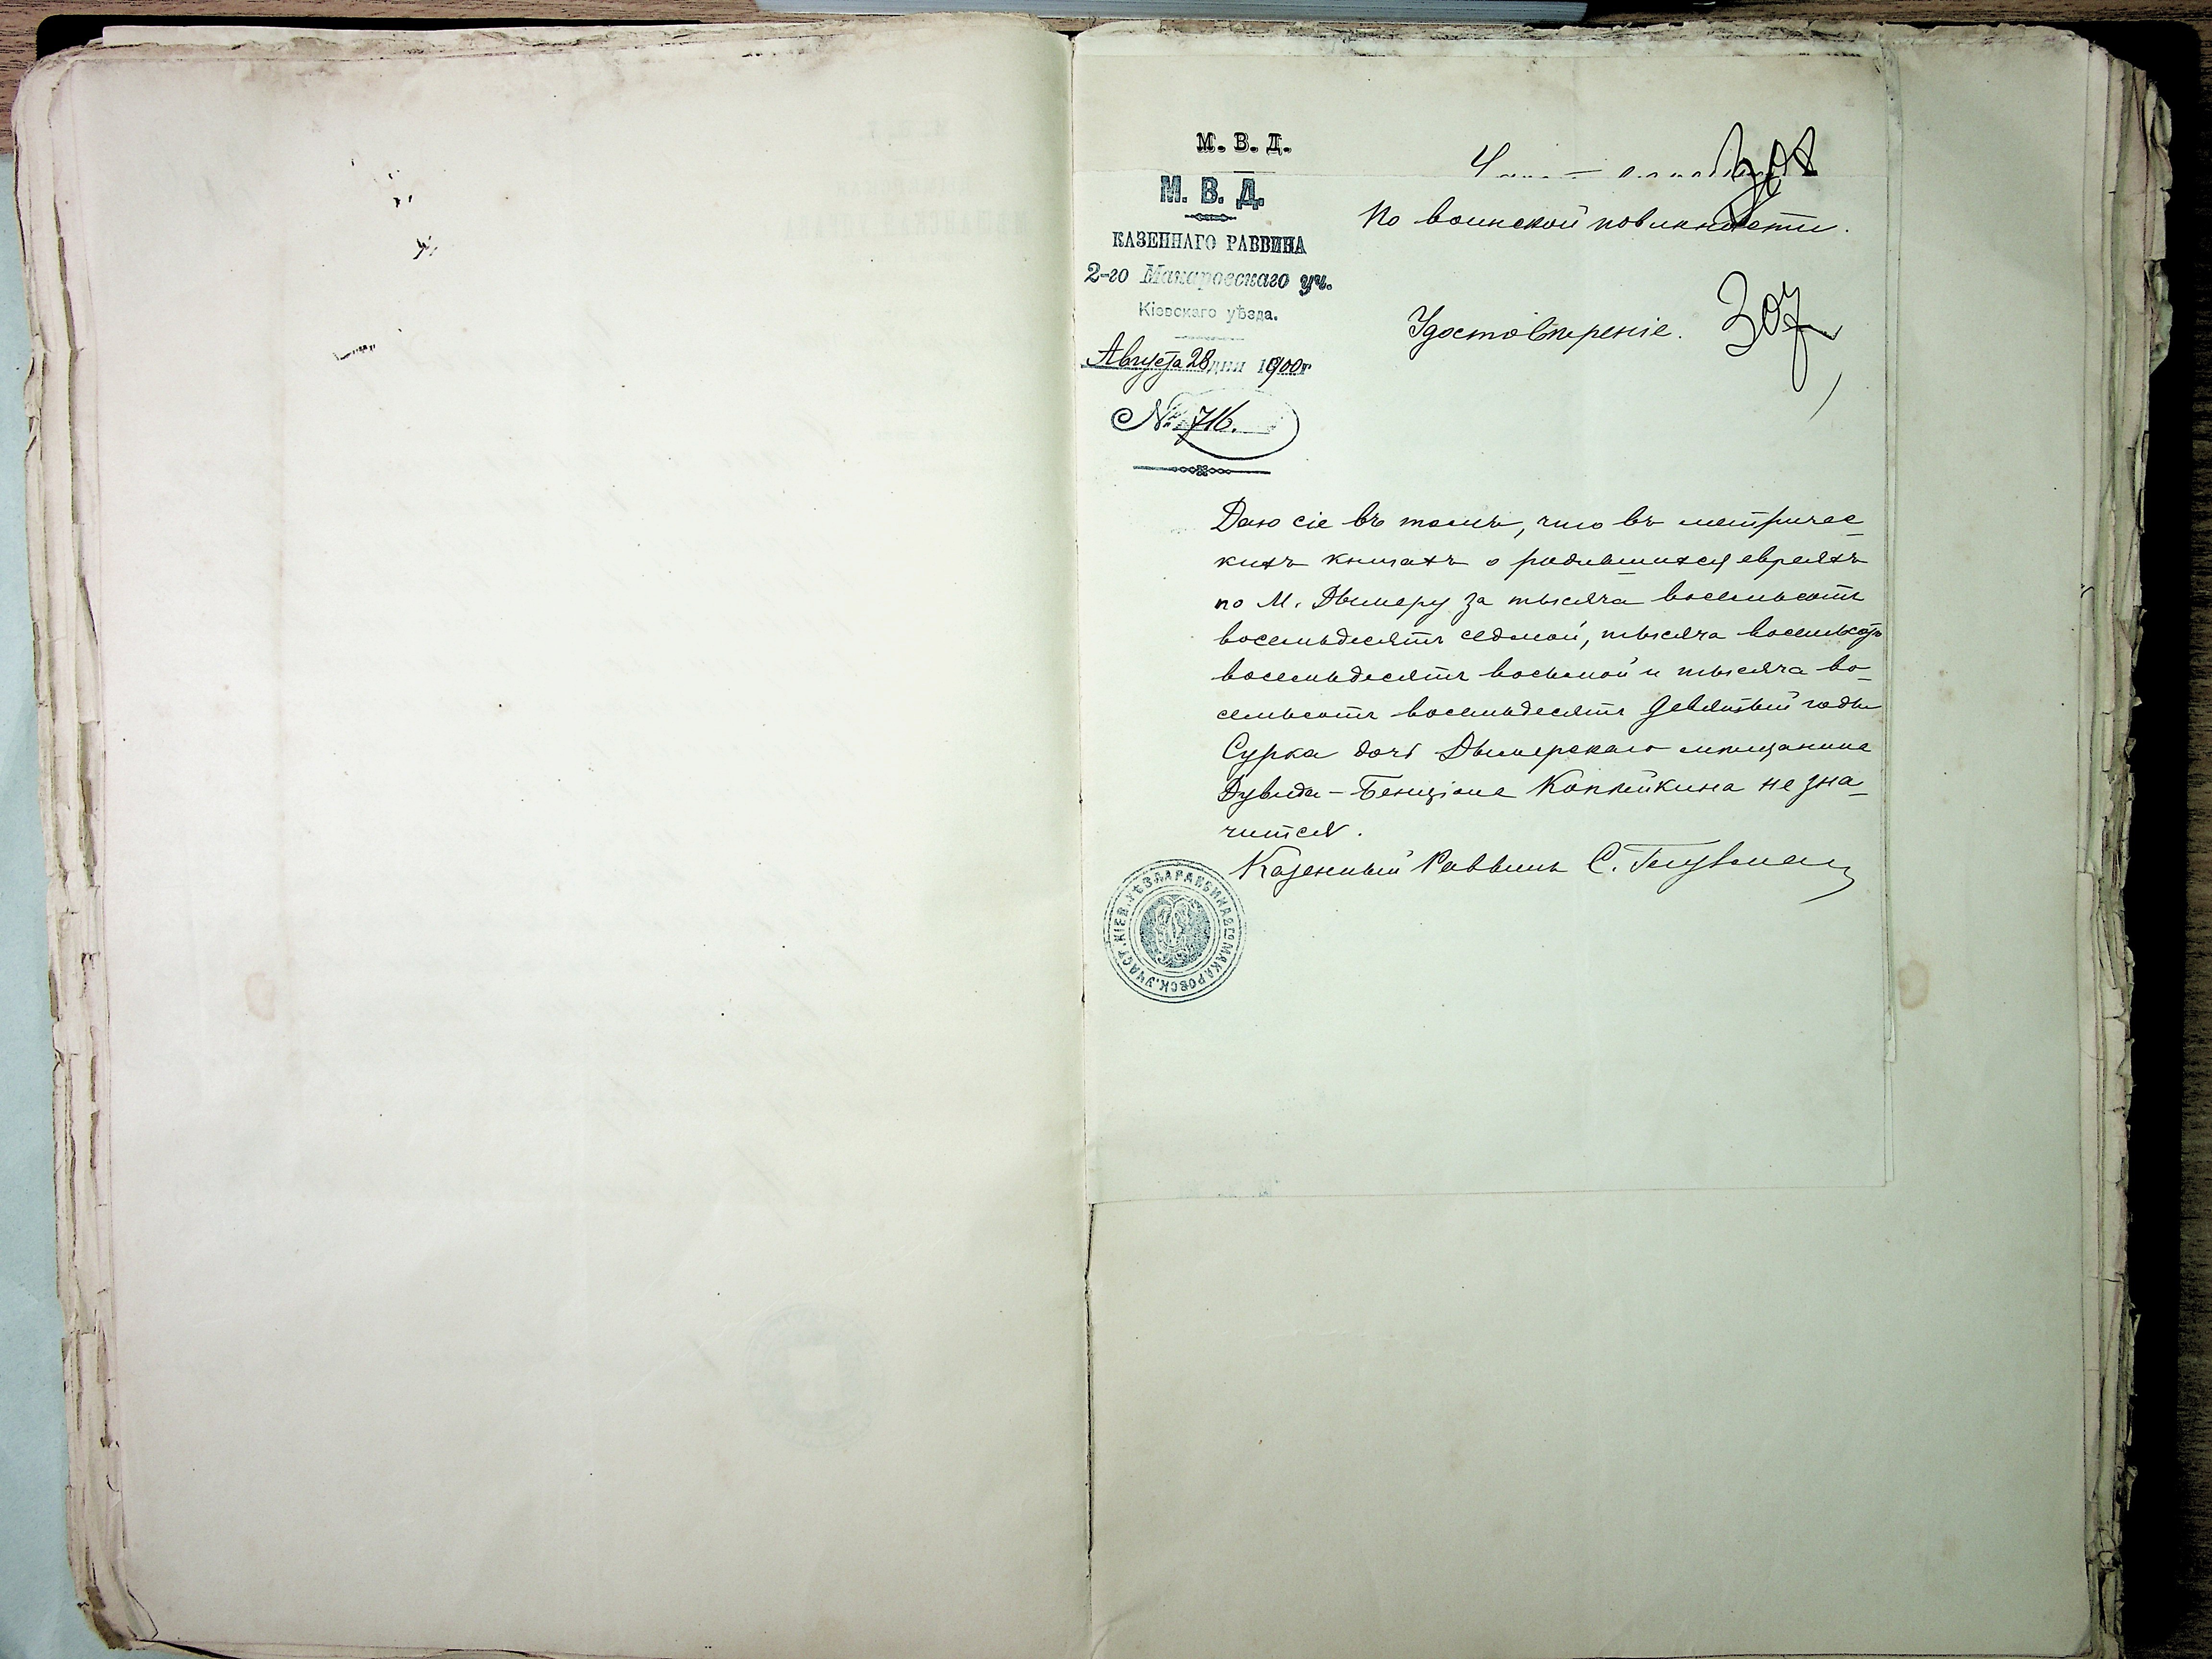 М. В. Д.
М. В. Д.
КАЗЕННАГО РАВВИНА
2-го Макаровскаго уч.
Кіевскаго уѣзда.
Августа 28 дня 1900 г.
№ 716.
По воинской повинности.
307
Удостовѣреніе.
Даю сіе въ томъ, что въ метричес-
кихъ книгахъ о родившихся евреяхъ
по М. Дымеру за тысяча восемьсотъ
восемьдесятъ седмой, тысяча восемьсотъ
восемьдесятъ восьмой и тысяча во-
семьсотъ восемьдесятъ девятый годы
Сурка дочь Дымерскаго мѣщанина
Дувида-Бенціона Копѣйкина не зна-
чится.
Казенный Раввинъ С.
КІЕВ. УѢЗДА РАВВИНА 2ГО МАКАРОВСК. УЧАСТ.